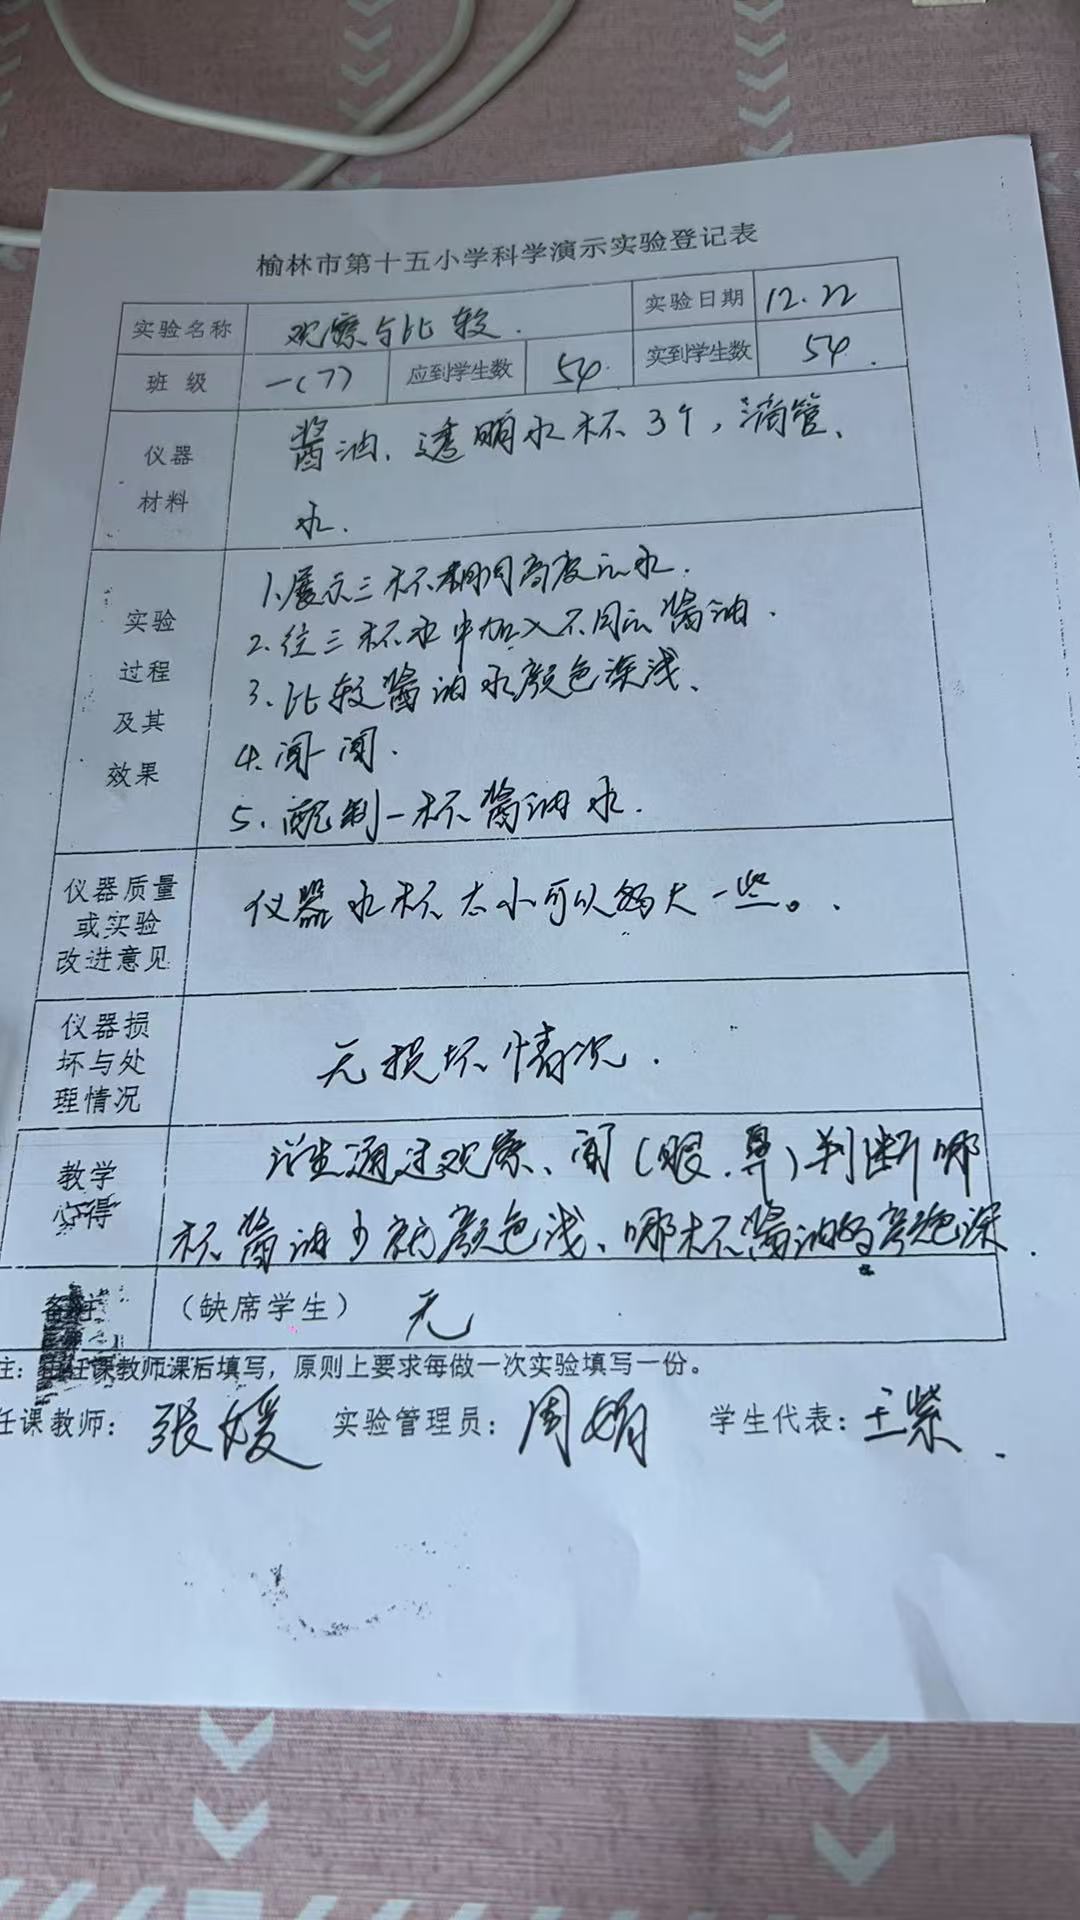 榆林市第十五小学科学演示实验登记表
实验名称 观察与比较. 实验日期 12.22
班 级 一(7) 应到学生数 54. 实到学生数 54.
仪器
材料
酱油、透明水杯3个,滴管、
水.
实验
过程
及其
效果
1.展示三杯相同高度的水.
2.往三杯水中加入不同的酱油.
3.比较酱油水颜色深浅、
4.闻一闻.
5.配制一杯酱油水.
仪器质量
或实验
改进意见
仪器水杯太小可以大一些。.
仪器损
坏与处
理情况
无损坏情况.
教学
心得
学生通过观察、闻(眼.鼻)判断哪
杯酱油少颜色浅、哪杯酱油颜色深.
(缺席学生) 无
注:任课教师课后填写,原则上要求每做一次实验填写一份。
任课教师:张媛 实验管理员:周娟 学生代表:王紫.